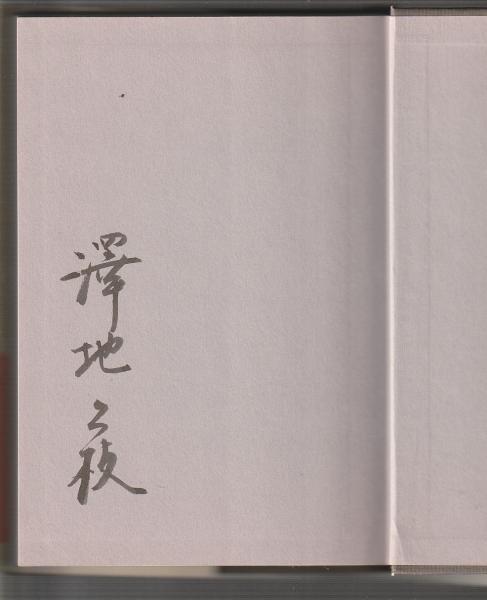 澤地久枝